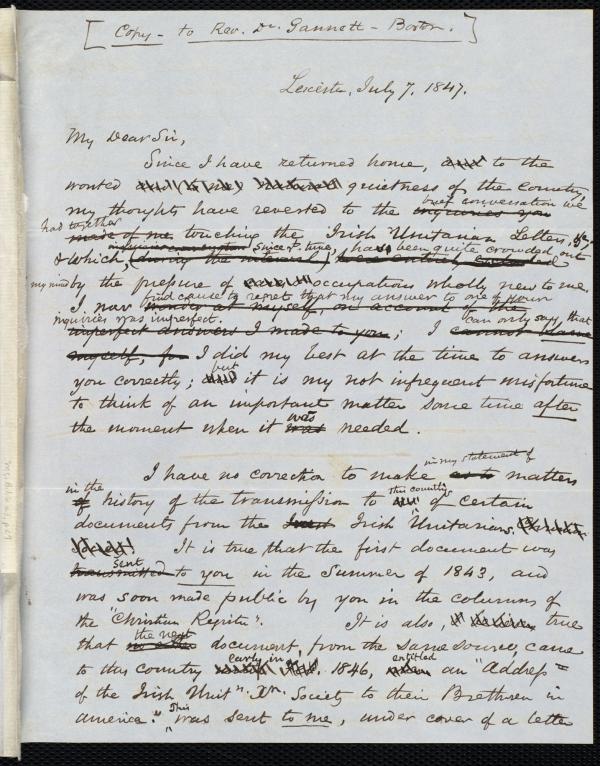 [Copy - to Rev. Dr. Gannett - Boston.]
Leicester, July 7, 1847.
My Dear Sir,
Since I have returned home, to the
wonted quietness of the country,
my thoughts have reverted to the inquiries you over conversation we
had together made of me touching the Irish Unitarian Letter, &c,
& which, (during the interval) since yt. time, has been quite crowded out
my mind by the pressure of occupations wholly new to me.
I now find cause to regret that my answer to one of your
inquiries was imperfect. imperfect answers I made to you; I can only say, that cannot blame
myself, for I did my best at the time to answer
you correctly; but it is my not infrequent misfortune
to think of an important matter some time after
the moment when it was was needed.
I have no correction to make in my statement of as to matters
in the of history of the transmission to this country of certain
documents from the Irish Unitarians.
It is true that the first document was
transmitted sent to you in the Summer of 1843, and
was soon made public by you in the columns of
the "Christian Register". It is also, true
that the next document, from the same source, came
to this country early in 1846, entitled an "Address
of the Irish Unitn. Xn. Society to their Brethren in
America." This was sent to me, under cover of a letter